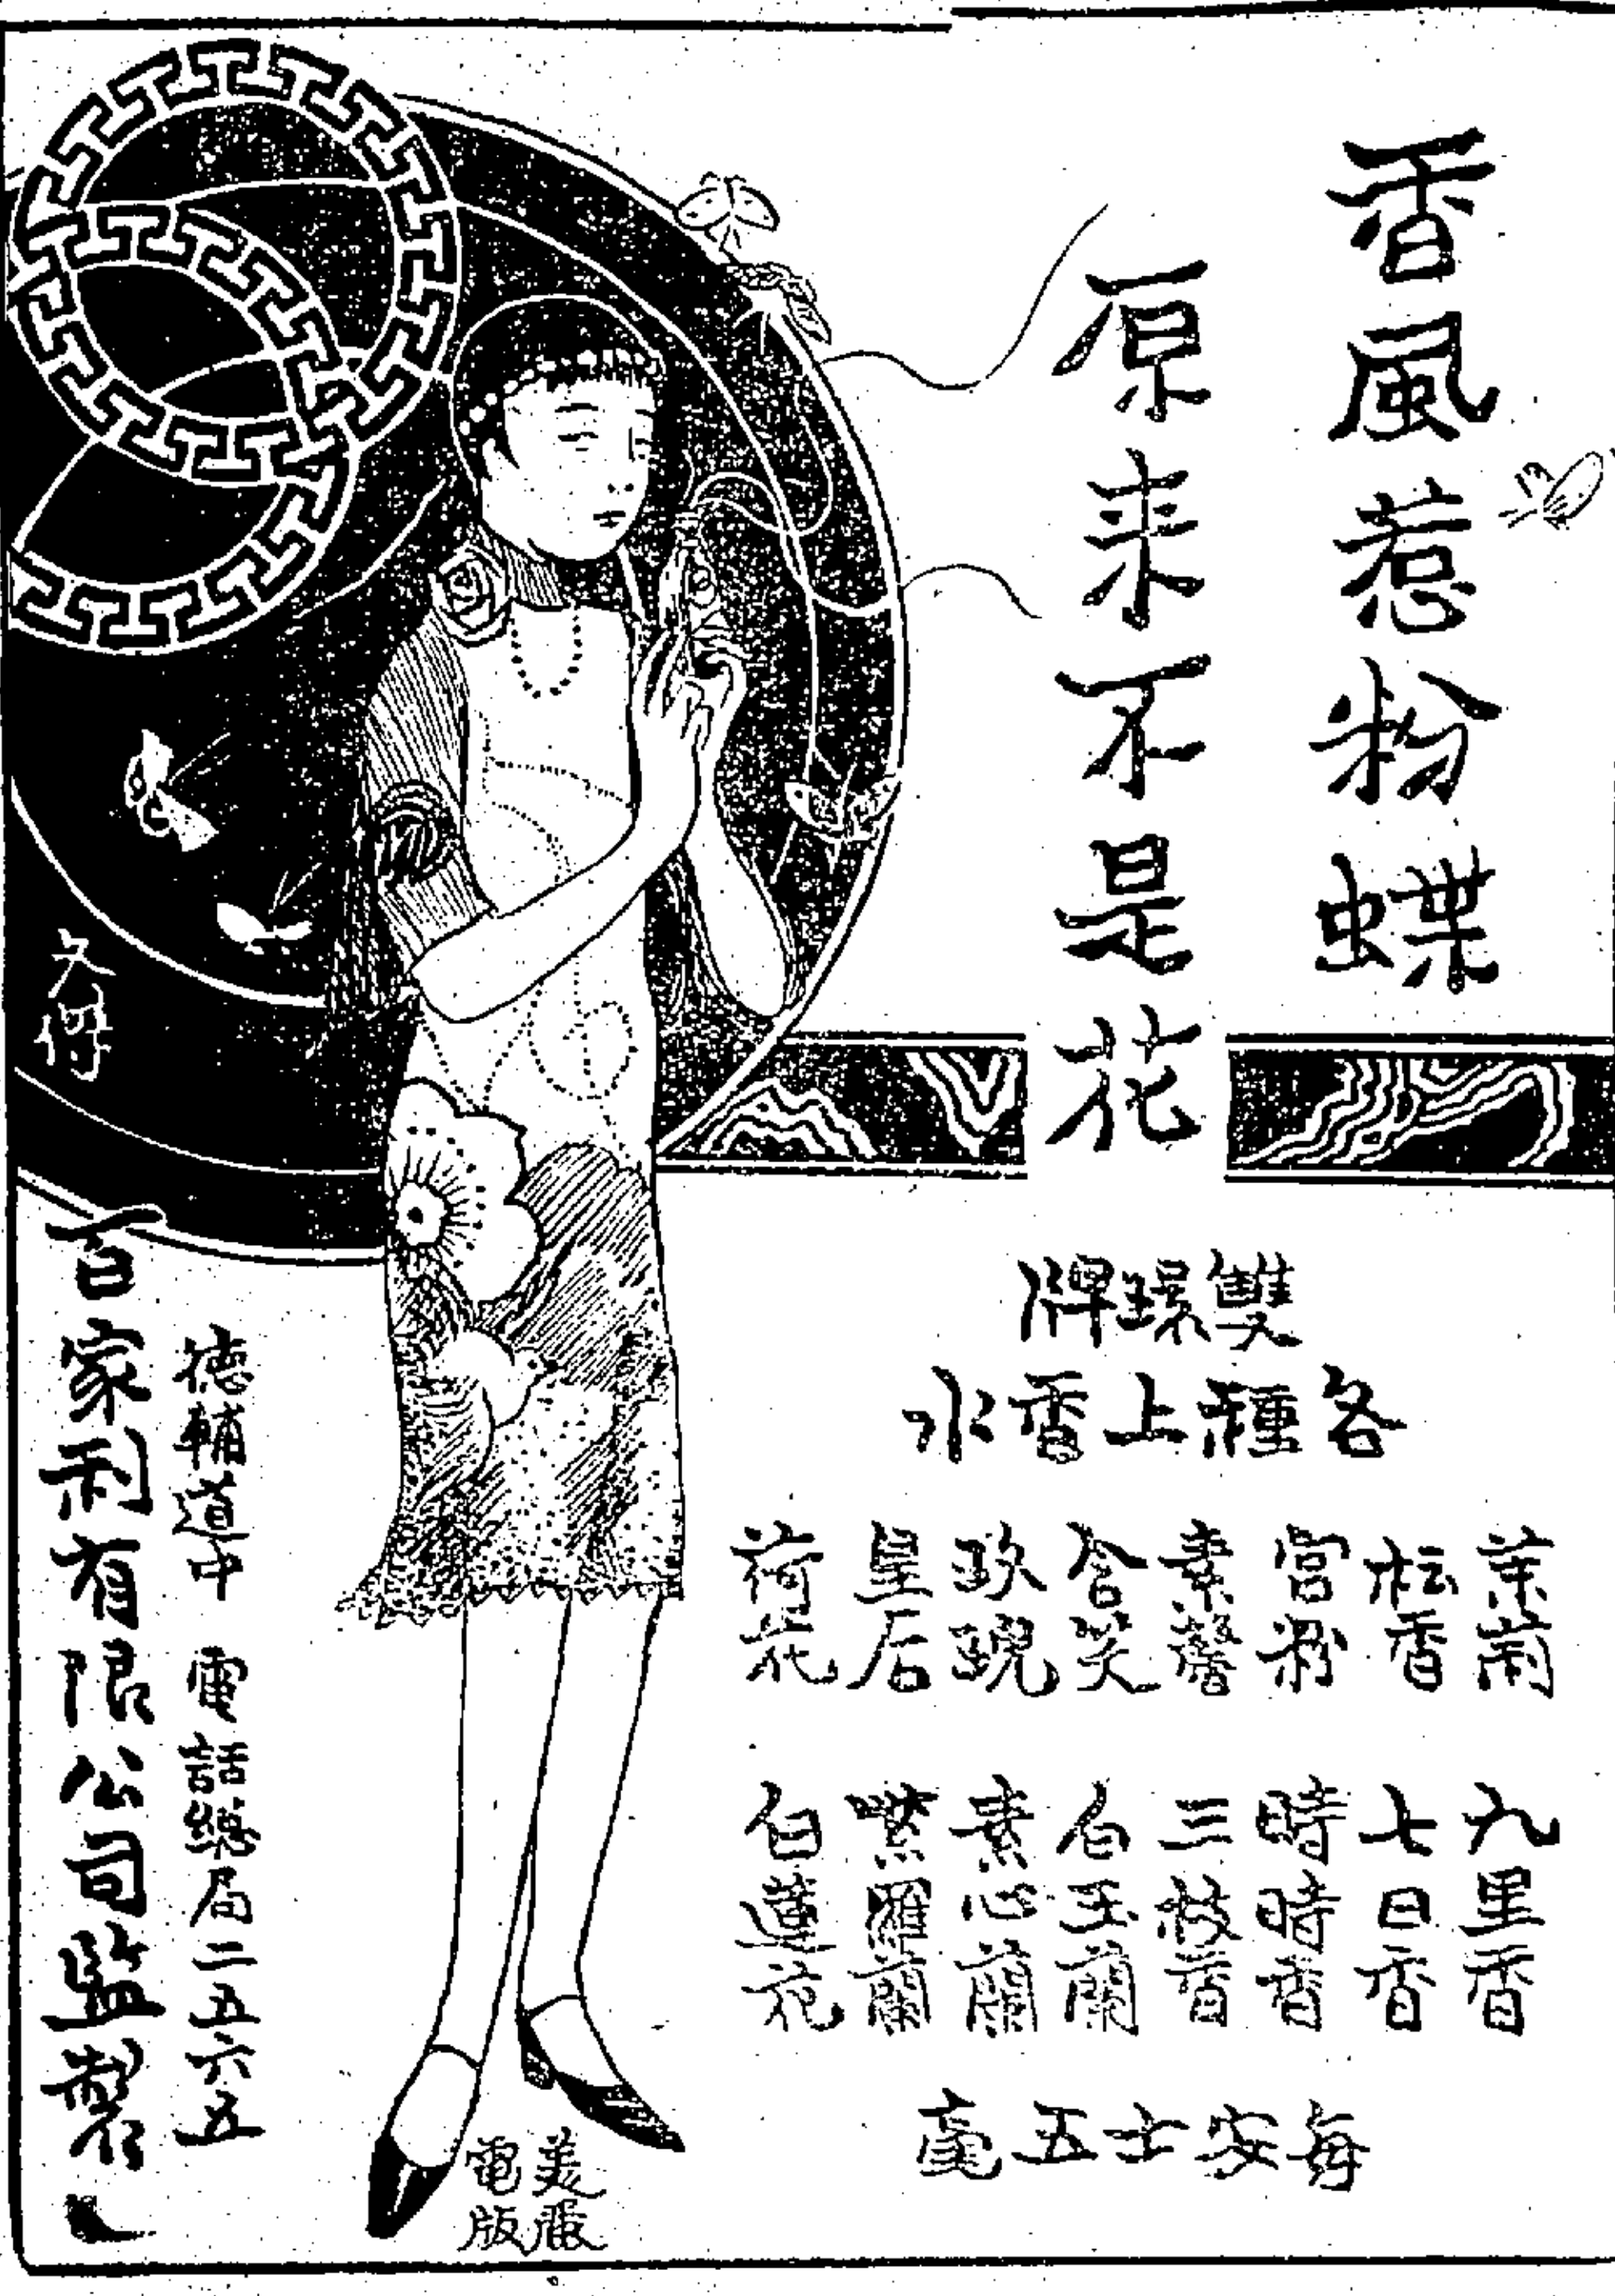 香風惹粉蝶
原来不是花
雙環牌
各種上香水
茉蘭
松香
宮粉
素馨
含笑
玖瑰
皇后
荷花
九里香
七日香
時時香
三枝香
白玉蘭
素心蘭
紫羅蘭
白蓮花
每安士五毫
德輔道中 電話總局二五六五
百家利有限公司監製
美嚴
電版